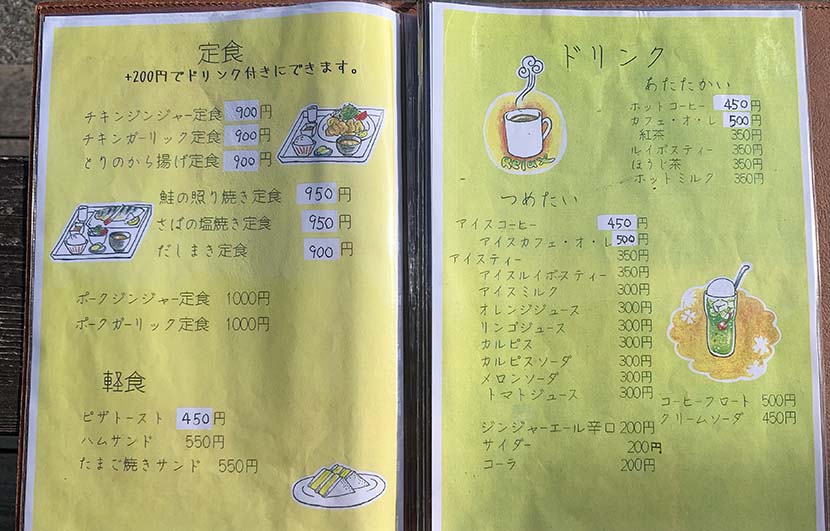 定食
+200円でドリンク付きにできます。
チキンジンジャー定食 900円
チキンガーリック定食 900円
とりのから揚げ定食 900円
鮭の照り焼き定食 950円
さばの塩焼き定食 950円
だしまき定食 900円
ポークジンジャー定食 1000円
ポークガーリック定食 1000円
軽食
ピザトースト 450円
ハムサンド 550円
たまご焼きサンド 550円
ドリンク
Relax
あたたかい
ホットコーヒー 450円
カフェ・オ・レ 500円
紅茶 350円
ルイボスティー 350円
ほうじ茶 350円
ホットミルク 350円
つめたい
アイスコーヒー 450円
アイスカフェ・オ・レ 500円
アイスティー 350円
アイスルイボスティー 350円
アイスミルク 300円
オレンジジュース 300円
リンゴジュース 300円
カルピス 300円
カルピスソーダ 300円
メロンソーダ 300円
トマトジュース 300円
コーヒーフロート 500円
クリームソーダ 450円
ジンジャーエール辛口 200円
サイダー 200円
コーラ 200円